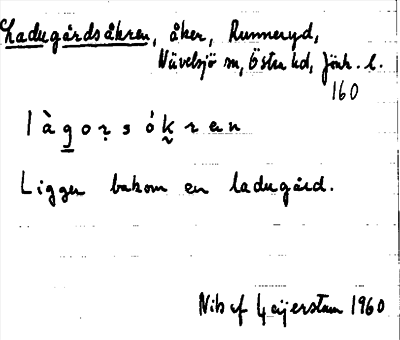 Ladugårdsåkren, åker, Runneryd,
Nävelsjö sn, Östra hd, Jönk. l.
160
l à g o r s ó k r e n
Ligger bakom en ladugård.
Nils af Geijerstam 1960